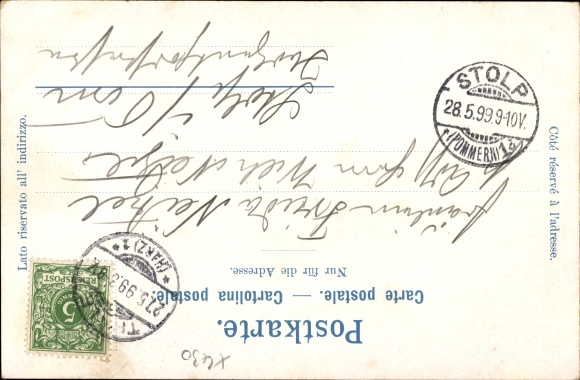 Postkarte.
Carte postale. — Cartolina postale.
Nur für die Adresse.
Fräulein Frieda Neitzel
Stolp i/Pom
Côté réservé à l'adresse.
Lato riservato all' indirizzo.
STOLP
28.5.99.9-10V.
*(POMMERN)1a
27.5.99.
(HARZ)
REICHSPOST
5
x430